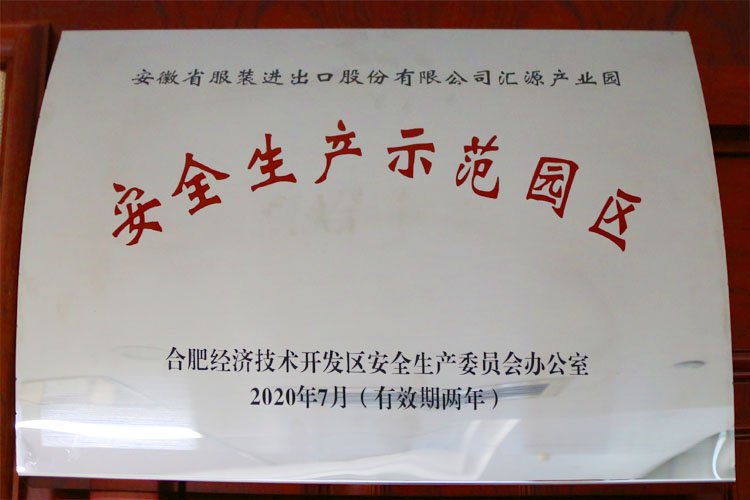 安徽省服装进出口股份有限公司汇源产业园
安全生产示范园区
合肥经济技术开发区安全生产委员会办公室
2020年7月（有效期两年）